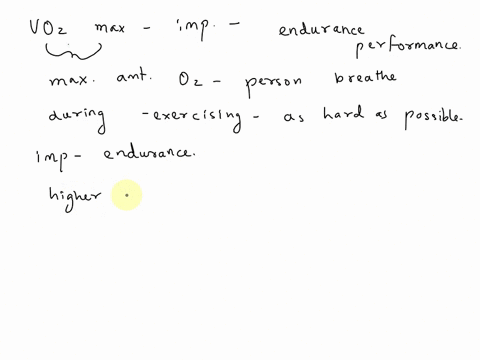 VO2 max - imp. - endurance performance.
max. amt. O2 - person breathe
during - exercising - as hard as possible.
imp - endurance.
higher